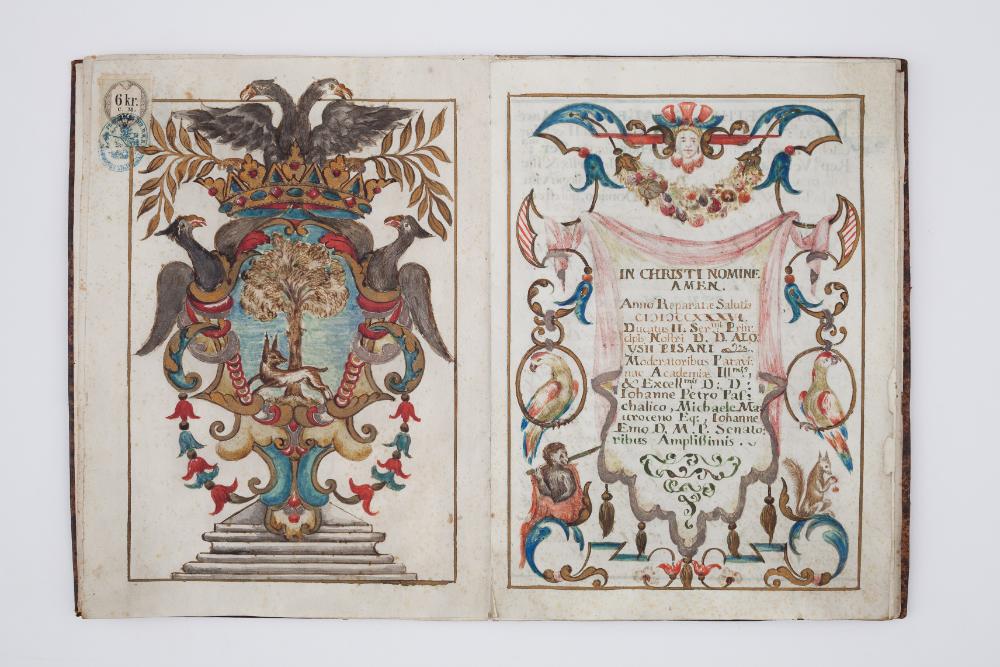 6 kr.
C. M.
IN CHRISTI NOMINE
AMEN.
Anno Reparatæ Salutis
Ducatus II. Ser.mi Prin:
cipis Nostri D. D. ALO:
YSII PISANI
Moderatoribus Patavi:
nae Academiæ Ill.mis,
& Excell.mis D: D:
Iohanne Petro Pas:
chalico, Michaele Ma:
uroceno Eq:, Iohanne
Emo D. M. P. Senato:
ribus Amplissimis.